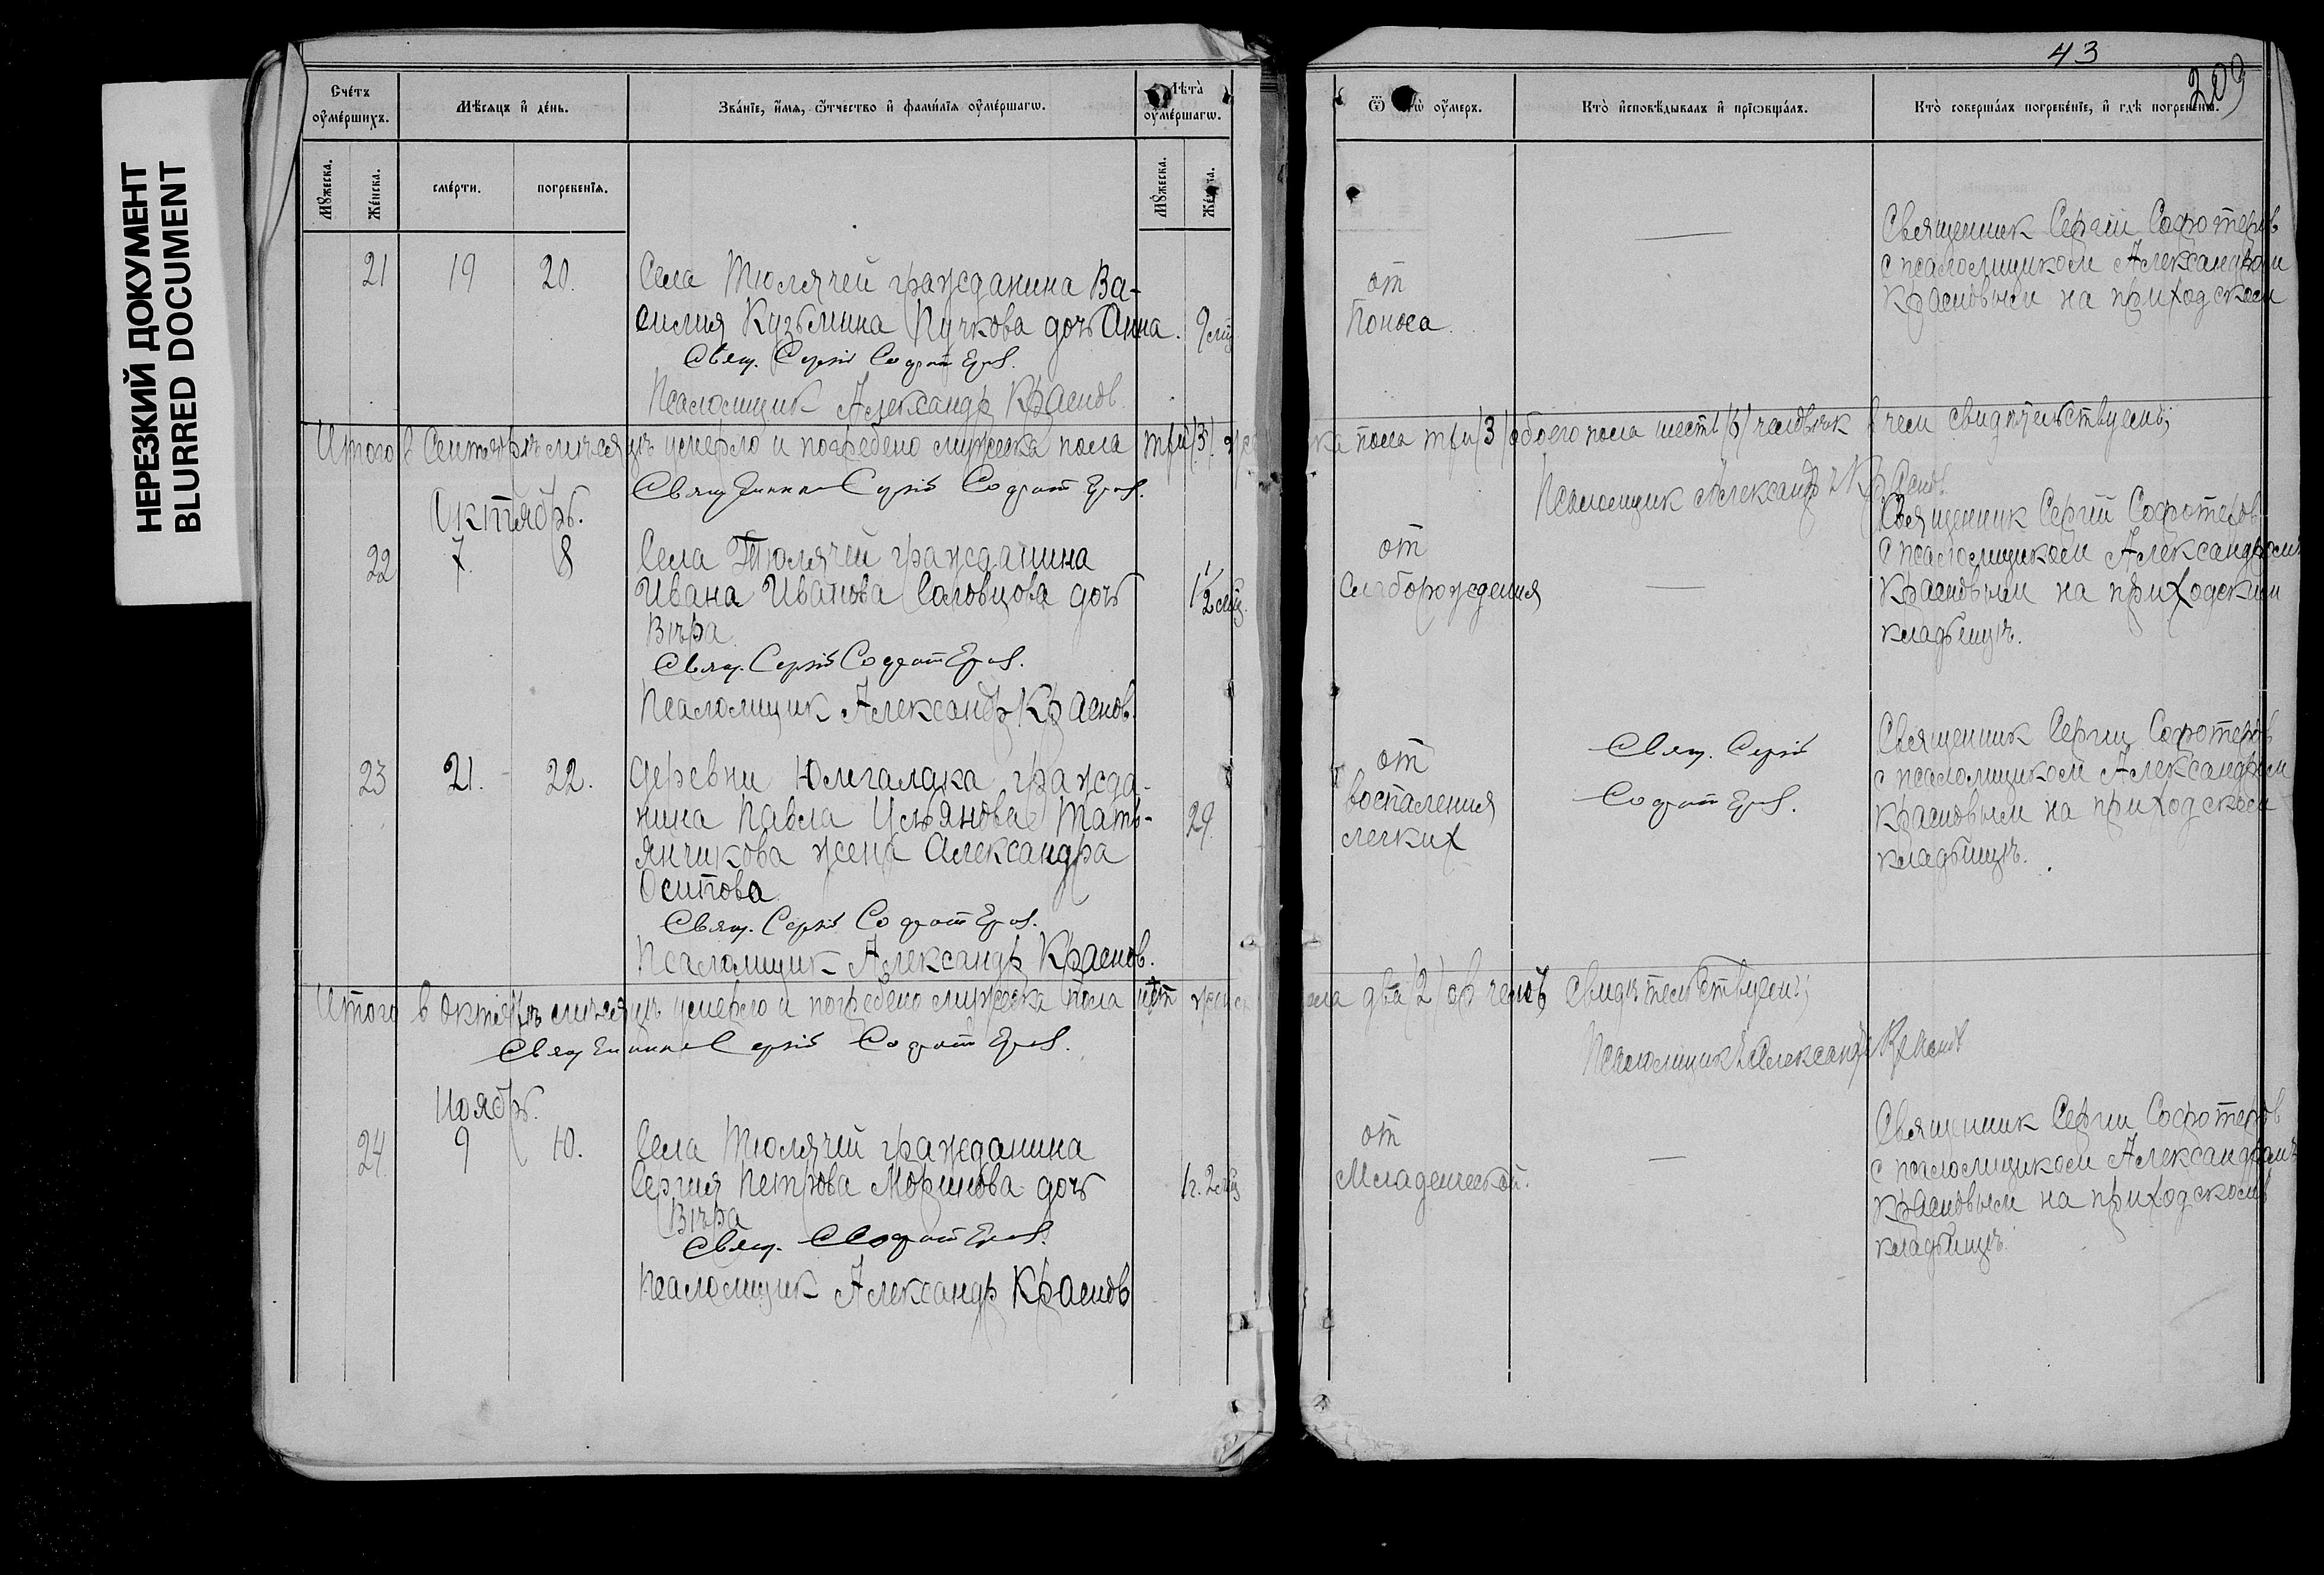 НЕРЕЗКИЙ ДОКУМЕНТ
BLURRED DOCUMENT
43
209
Счетъ оумершихъ.
Мѣсяцъ и день.
Званіе, имя, отчество и фамилія оумершагѡ.
Лѣта оумершагѡ.
оумеръ.
Кто исповѣдывалъ и пріобщалъ.
Кто совершалъ погребеніе, и гдѣ погребены.
Мужеска.
Женска.
смерти.
погребенія.
Мужеска.
21 19 20. Села Тюлячей гражданина Ва-
силия Кузьмина Пучкова дочь Анна.
Свящ. Сергій Софотеров.
Псаломщик Александр Краснов
от
Поноса.
Священник Сергий Софотеров
с псаломщиком Александром
Красновым на приходском
Итого в Сентябрѣ мѣсяцѣ умерло и погребено мужеска пола три (3) женска пола три (3) обоего пола шесть (6) человѣк в чем свидѣтельствуем;
Священник Сергій Софотеров.
Псаломщик Александр Краснов
Октябрь.
22 7. 8 Села Тюлячей гражданина
Ивана Иванова Соловцова дочь
Вѣра
Свящ. Сергій Софотеров.
Псаломщик Александр Краснов.
1 1/2 мѣс.
от
Слаборождения
Священник Сергий Софотеров
с псаломщиком Александром
Красновым на приходским
кладбищѣ.
23 21. 22. Деревни гражда-
нина Павла Ульянова Тать-
янчикова жена Александра
Осипова
Свящ. Сергій Софотеров.
Псаломщик Александр Краснов.
29.
от
воспаления
легких
Свящ. Сергій
Софотеров.
Священник Сергии Софотеров
с псаломщиком Александром
Красновым на приходском
кладбищѣ.
Итого в Октябрѣ мѣсяцѣ умерло и погребено мужеска пола нет два (2) в чем свидѣтельствуем;
Священник Сергій Софотеров.
Псаломщик Александр Краснов
Ноябрь.
24. 9 10. Села Тюлячей гражданина
Сергия Петрова дочь
Вѣра
Свящ. С Софотеров.
Псаломщик Александр Краснов
от
Младенческой.
Священник Сергии Софотеров
с псаломщиком Александромъ
Красновым на приходском
кладбищѣ.